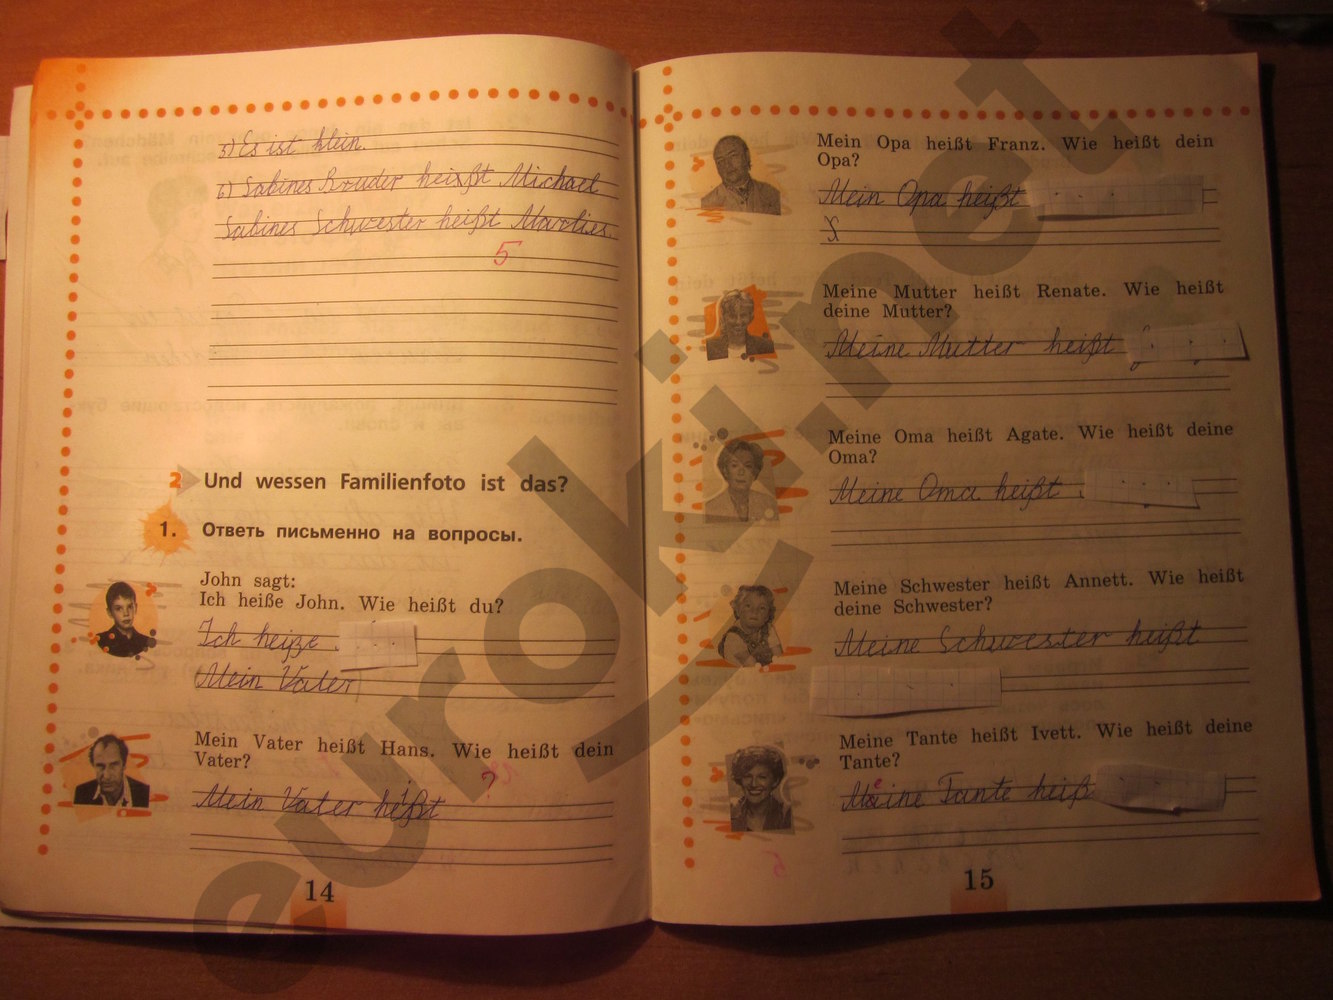 5) Es ist klein.
6) Sabines Bruder heißt Michael
Sabines Schwester heißt Marlies.
5
2 Und wessen Familienfoto ist das?
1. Ответь письменно на вопросы.
John sagt:
Ich heiße John. Wie heißt du?
Ich heiße
Mein Vater
Mein Vater heißt Hans. Wie heißt dein
Vater?
?
Mein Vater heißt
14
Mein Opa heißt Franz. Wie heißt dein
Opa?
Mein Opa heißt
Meine Mutter heißt Renate. Wie heißt
deine Mutter?
Meine Mutter heißt
Meine Oma heißt Agate. Wie heißt deine
Oma?
Meine Oma heißt
Meine Schwester heißt Annett. Wie heißt
deine Schwester?
Meine Schwester heißt
Meine Tante heißt Ivett. Wie heißt deine
Tante?
Meine Tante heiß
15
euroki.net